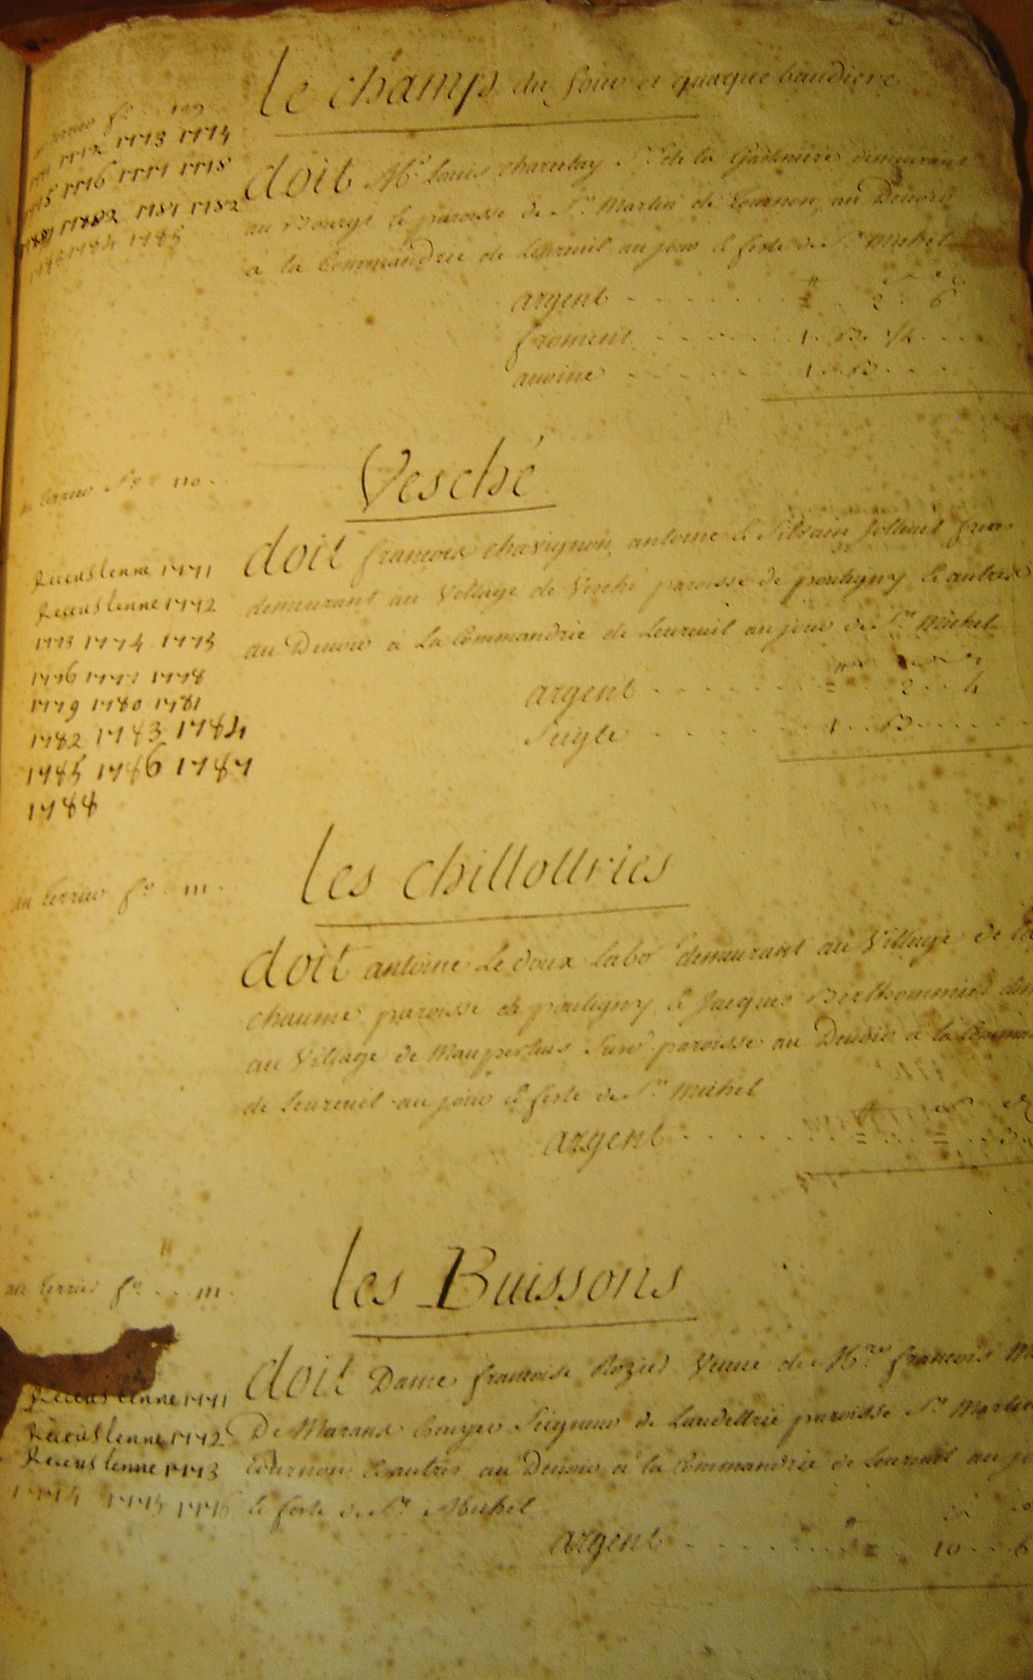 le champ du four et quaque baudiere
au terrier fo .. 109
1772 1773 1774
1776 1777 1778
1781 1782
1784 1785
doit Mr louis charcelay Sr de la Gastiniere demeurant
au Bourg & paroisse de St Martin de Tournon, au Devoir
à la Commandrie de Leureuil au jour & feste de St Michel
argent = 2 6
froment 1 B 1/2
avoine 1 B
Vesché
au terrier fo 110
doit francois chavignon, antoine & Silvain Jolliuet freres
demeurant au Village de Vesché paroisse de pouligny & autres
au Devoir à La Commandrie de Leureuil au jour de St Michel
Receu Lenne 1771
Receu Lenne 1772
1773 1774 1775
1776 1777 1778
1779 1780 1781
1782 1783 1784
1785 1786 1787
1788
argent = 2 4
Seigle 1 B
les chillottries
au terrier fo . 111
doit antoine Le doux labr demeurant au Village de la
chaume paroisse de pouligny & Jacques Berthommier
au Village de Maupertuis paroisse au Devoir à la
de Leureuil au jour & feste de St Michel
argent = = 3
les Buissons
au terrier fo ... 111
doit Dame francoise Rozier Veuve de Mre francois
De Marans Ecuyer Seigneur de Laudettrie paroisse St Martin
Tournon & autres au Devoir à la Commandrie de Leureuil au
& feste de St Michel
Receu Lenne 1771
Receu Lenne 1772
Receu Lenne 1773
1774 1775 1776
argent = 10 6